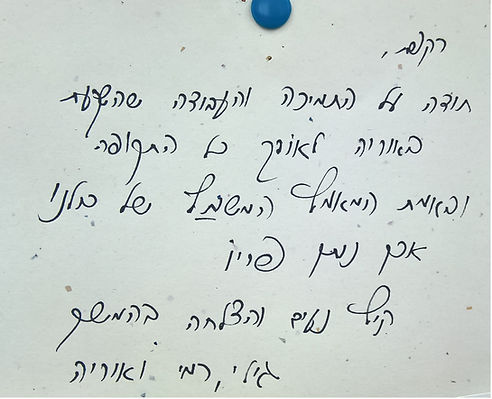 רקפת,
תודה על התמיכה והעבודה שהשקעת
באוריה לאורך כל התקופה
ובאמת המאמץ המשותף של כולנו
אכן נותן פריו
קיץ נעים והצלחה בהמשך
גילי, רמי ואוריה